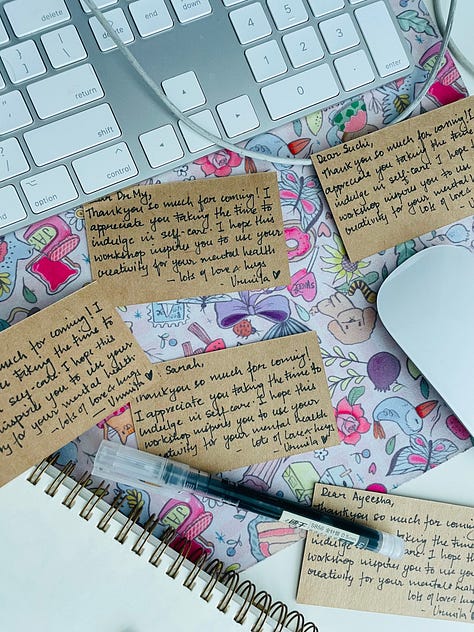 delete
end
page
down
4
5
6
return
1
2
3
enter
shift
0
.
control
option
Dear Suchi,
Thank you so much for coming! I
appreciate you taking the time to
indulge in self-care. I hope this
workshop inspires you to use your
creativity for your mental health
- lots of love & hugs
Dear Dr. My,
Thank you so much for coming! I
appreciate you taking the time to
indulge in self-care. I hope this
workshop inspires you to use your
creativity for your mental health
- lots of love & hugs
Urmila ♥
much for coming! I
taking the time to
self-care. I hope this
inspires you to use
for your mental health
- lots of love & hugs
- Urmila
Sarah
Thank you so much for coming!
I appreciate you taking the time to
indulge in self-care. I hope this
workshop inspires you to use your
creativity for your mental health
- lots of love & hugs
Urmila ♥
Dear Ayeesha,
Thank you so much for coming
appreciate you
indulge in I hope
workshop inspires you to use
creativity for your mental health
lots of love &
- Urmila